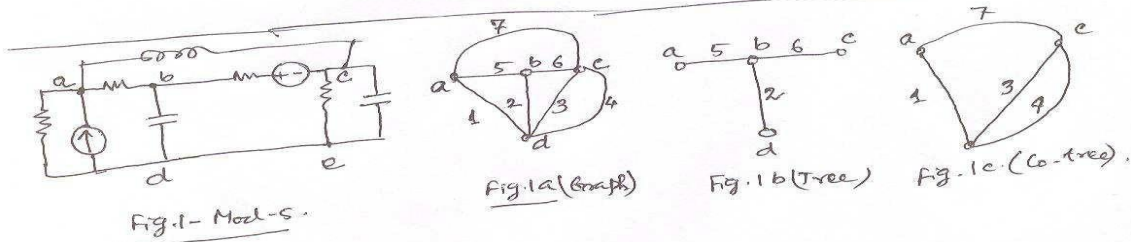 a
b
c
d
e
+ -
Fig.1- Mod-5.
7
a 5 b 6 c
1 2 3 4
d
Fig.1a (Graph)
a 5 b 6 c
2
d
Fig.1b (Tree)
7
a c
1 3 4
Fig.1c. (Co-tree).